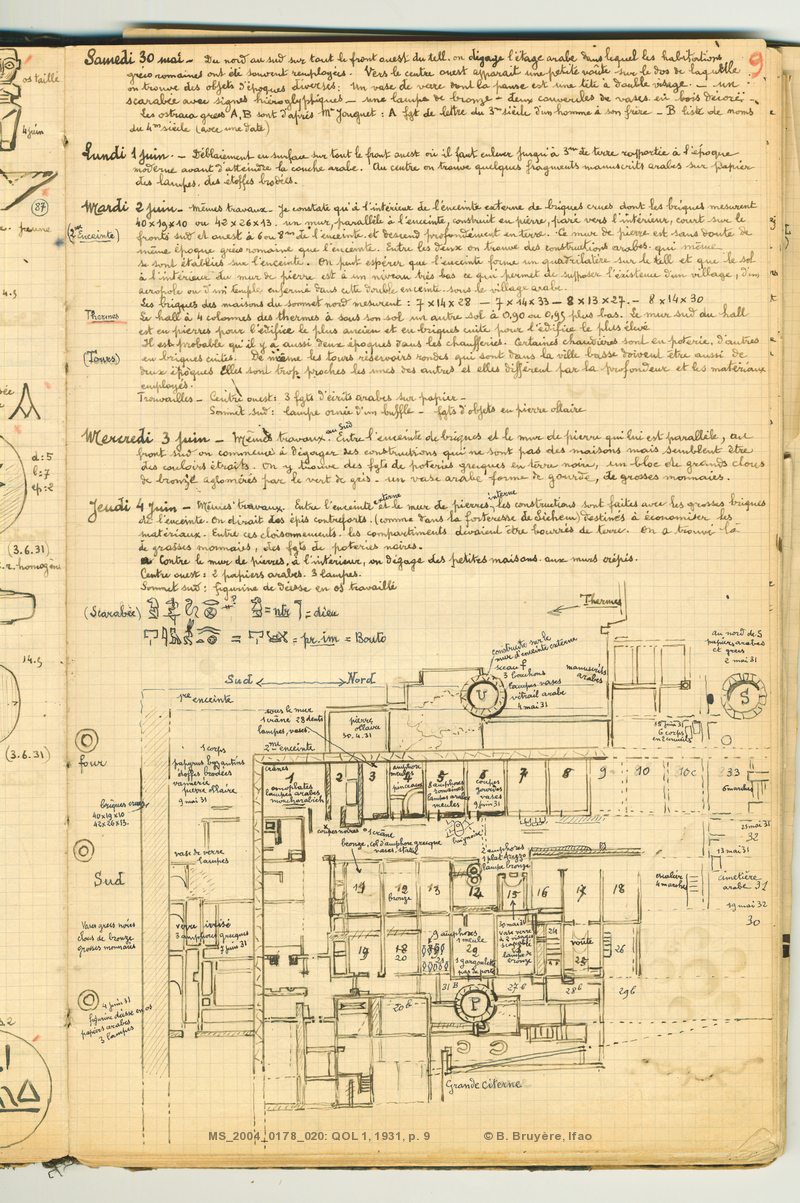 9
Samedi 30 mai - Du nord au sud sur tout le front ouest du tell. on dégage l'étage arabe dans lequel les habitations
greco romaines ont été souvent remployées. Vers le centre ouest apparait une petite voute sur le dos de laquelle
on trouve des objets d'époques diverses: Un vase de verre dont la panse est une tête à double visage. - un
scarabée avec signes hiéroglyphiques - une lampe de bronze - deux couvercles de vases en bois décoré.
les ostraca grecs A, B sont d'après Mr Jouguet: A fgt de lettre du 3me siècle d'un homme à son frère - B liste de noms
du 4me siècle (avec une date)
Lundi 1 juin. - Déblaiement en surface sur tout le front ouest où il faut enlever jusqu'à 3m de terre rapportée à l'époque
moderne avant d'atteindre la couche arabe. Au centre on trouve quelques fragments manuscrits arabes sur papier
des lampes. des étoffes brodées.
Mardi 2 juin - mêmes travaux. Je constate qu'à l'intérieur de l'enceinte externe de briques crues dont les briques mesurent
(2me Enceinte)
40x19x10 ou 42x26x13. un mur, parallèle à l'enceinte, construit en pierre, paré vers l'intérieur, court sur le
fronts sud et ouest à 6 ou 8m de l'enceinte et descend profondément en terre. Ce mur de pierre est sans doute de
même époque gréco romaine que l'enceinte. Entre les deux on trouve des constructions arabes qui même
se sont établies sur l'enceinte. On peut espérer que l'enceinte forme un quadrilatère sur le tell et que le sol
à l'intérieur du mur de pierre est à un niveau très bas ce qui permet de supposer l'existence d'un village, d'un
acropole ou d'un temple enfermé dans cette double enceinte. sous le village arabe.
Les briques des maisons du sommet nord mesurent: 7 x 14 x 28 - 7 x 14 x 33 - 8 x 13 x 27. - 8 x 14 x 30
Thermes
Le hall à 4 colonnes des thermes à sous son sol un autre sol à 0,90 ou 0,95 plus bas. Le mur sud du hall
est en pierres pour l'édifice le plus ancien et en briques cuite pour l'édifice le plus élevé
Il est probable qu'il y a aussi deux époques dans les chaufferies. Certaines chaudières sont en poterie, d'autres
(Tours)
en briques cuites. De même les tours réservoirs rondes qui sont dans la ville basse doivent être aussi de
deux époques Elles sont trop proches les unes des autres et elles diffèrent par la profondeur et les matériaux
employés.
Trouvailles - Centre ouest: 3 fgts d'écrits arabes sur papier -
Sommet sud: lampe ornée d'un buffle - fgts d'objets en pierre ollaire
Mercredi 3 juin - Mêmes travaux. au Sud Entre l'enceinte de briques et le mur de pierre qui lui est parallèle, au
front sud on commence à dégager des constructions qui ne sont pas des maisons mais semblent être
des couloirs étroits. On y trouve des fgts de poteries grecques en terre noire, un bloc de grands clous
de bronze aglomérés par le vert de gris - un vase arabe forme de gourde, de grosses monnaies.
Jeudi 4 Juin - Mêmes travaux. Entre l'enceinte externe et le mur de pierres interne les constructions sont faites avec les grosses briques
de l'enceinte. On dirait des épis contreforts. (comme dans la forteresse de Sichem) destinés à économiser les
matériaux. Entre ces cloisonnements. les compartiments devaient être bourrés de terre. On a trouvé là
de grosses monnaies, des fgts de poteries noires.
Contre le mur de pierres, à l'intérieur, on dégage des petites maisons aux murs crépis.
Centre ouest: 2 papiers arabes. 3 lampes.
Sommet sud: figurine de déesse en os travaillé
(Scarabée)
= ntr
= dieu
= pr.im = Bouto
Thermes
Sud
Nord
1re enceinte
2me enceinte
sous le mur
1 crâne 28 dents
lampes, vases.
pierre
ollaire
30.4.31
U
construite sur le
mur d'enceinte externe
sceau
3 bouchons
lampes vases
vitrail arabe
4 mai 31
manuscrits
arabes
au nord de S
papiers arabes
et grecs
2 mai 31
S
15 juin 31
6 corps
four
1 corps
papyrus byzantins
étoffes brodées
vannerie
pierre ollaire
9 mai 31
briques crues
40x19x10
42x26x13.
Sud
vase de verre
lampes
Vases grecs noirs
clous de bronze
grosses monnaies
verre irisé
3 amphores grecques
7 juin 31
4 juin 31
figurine déesse en os
papiers arabes
3 lampes
crânes
1
omoplates
lampes arabes
moucharabieh
2
3
4
amphore
meule
5
8 amphores
romaines
lampes arabes
meules
6
coupes
gourdes
vases
9 juin 31
7
8
9
10
10c
33
coupes noires
1 crâne
bronze, col d'amphore grecque
2 amphores
1 plat
lampe bronze
21 mai 31
32
13 mai 31
escalier
4 marches
cimetière
arabe 31
19 mai 32
30
12
bronze
13
14
15
16
17
18
19
20
9 amphores
1 meule
29
1 gargoulette
30 mai 31
vase verre
à 2 visages
scarabée
lampe de
bronze
24
voute
25
26
20b
31 B
27 b
28 b
29 b
P
Grande citerne
os taillé
4 juin
87
4.5
d: 5
l: 7
ep: 2
(3.6.31)
14.5
(3.6.31)
MS_2004_0178_020: QOL 1, 1931, p. 9
© B. Bruyère, Ifao